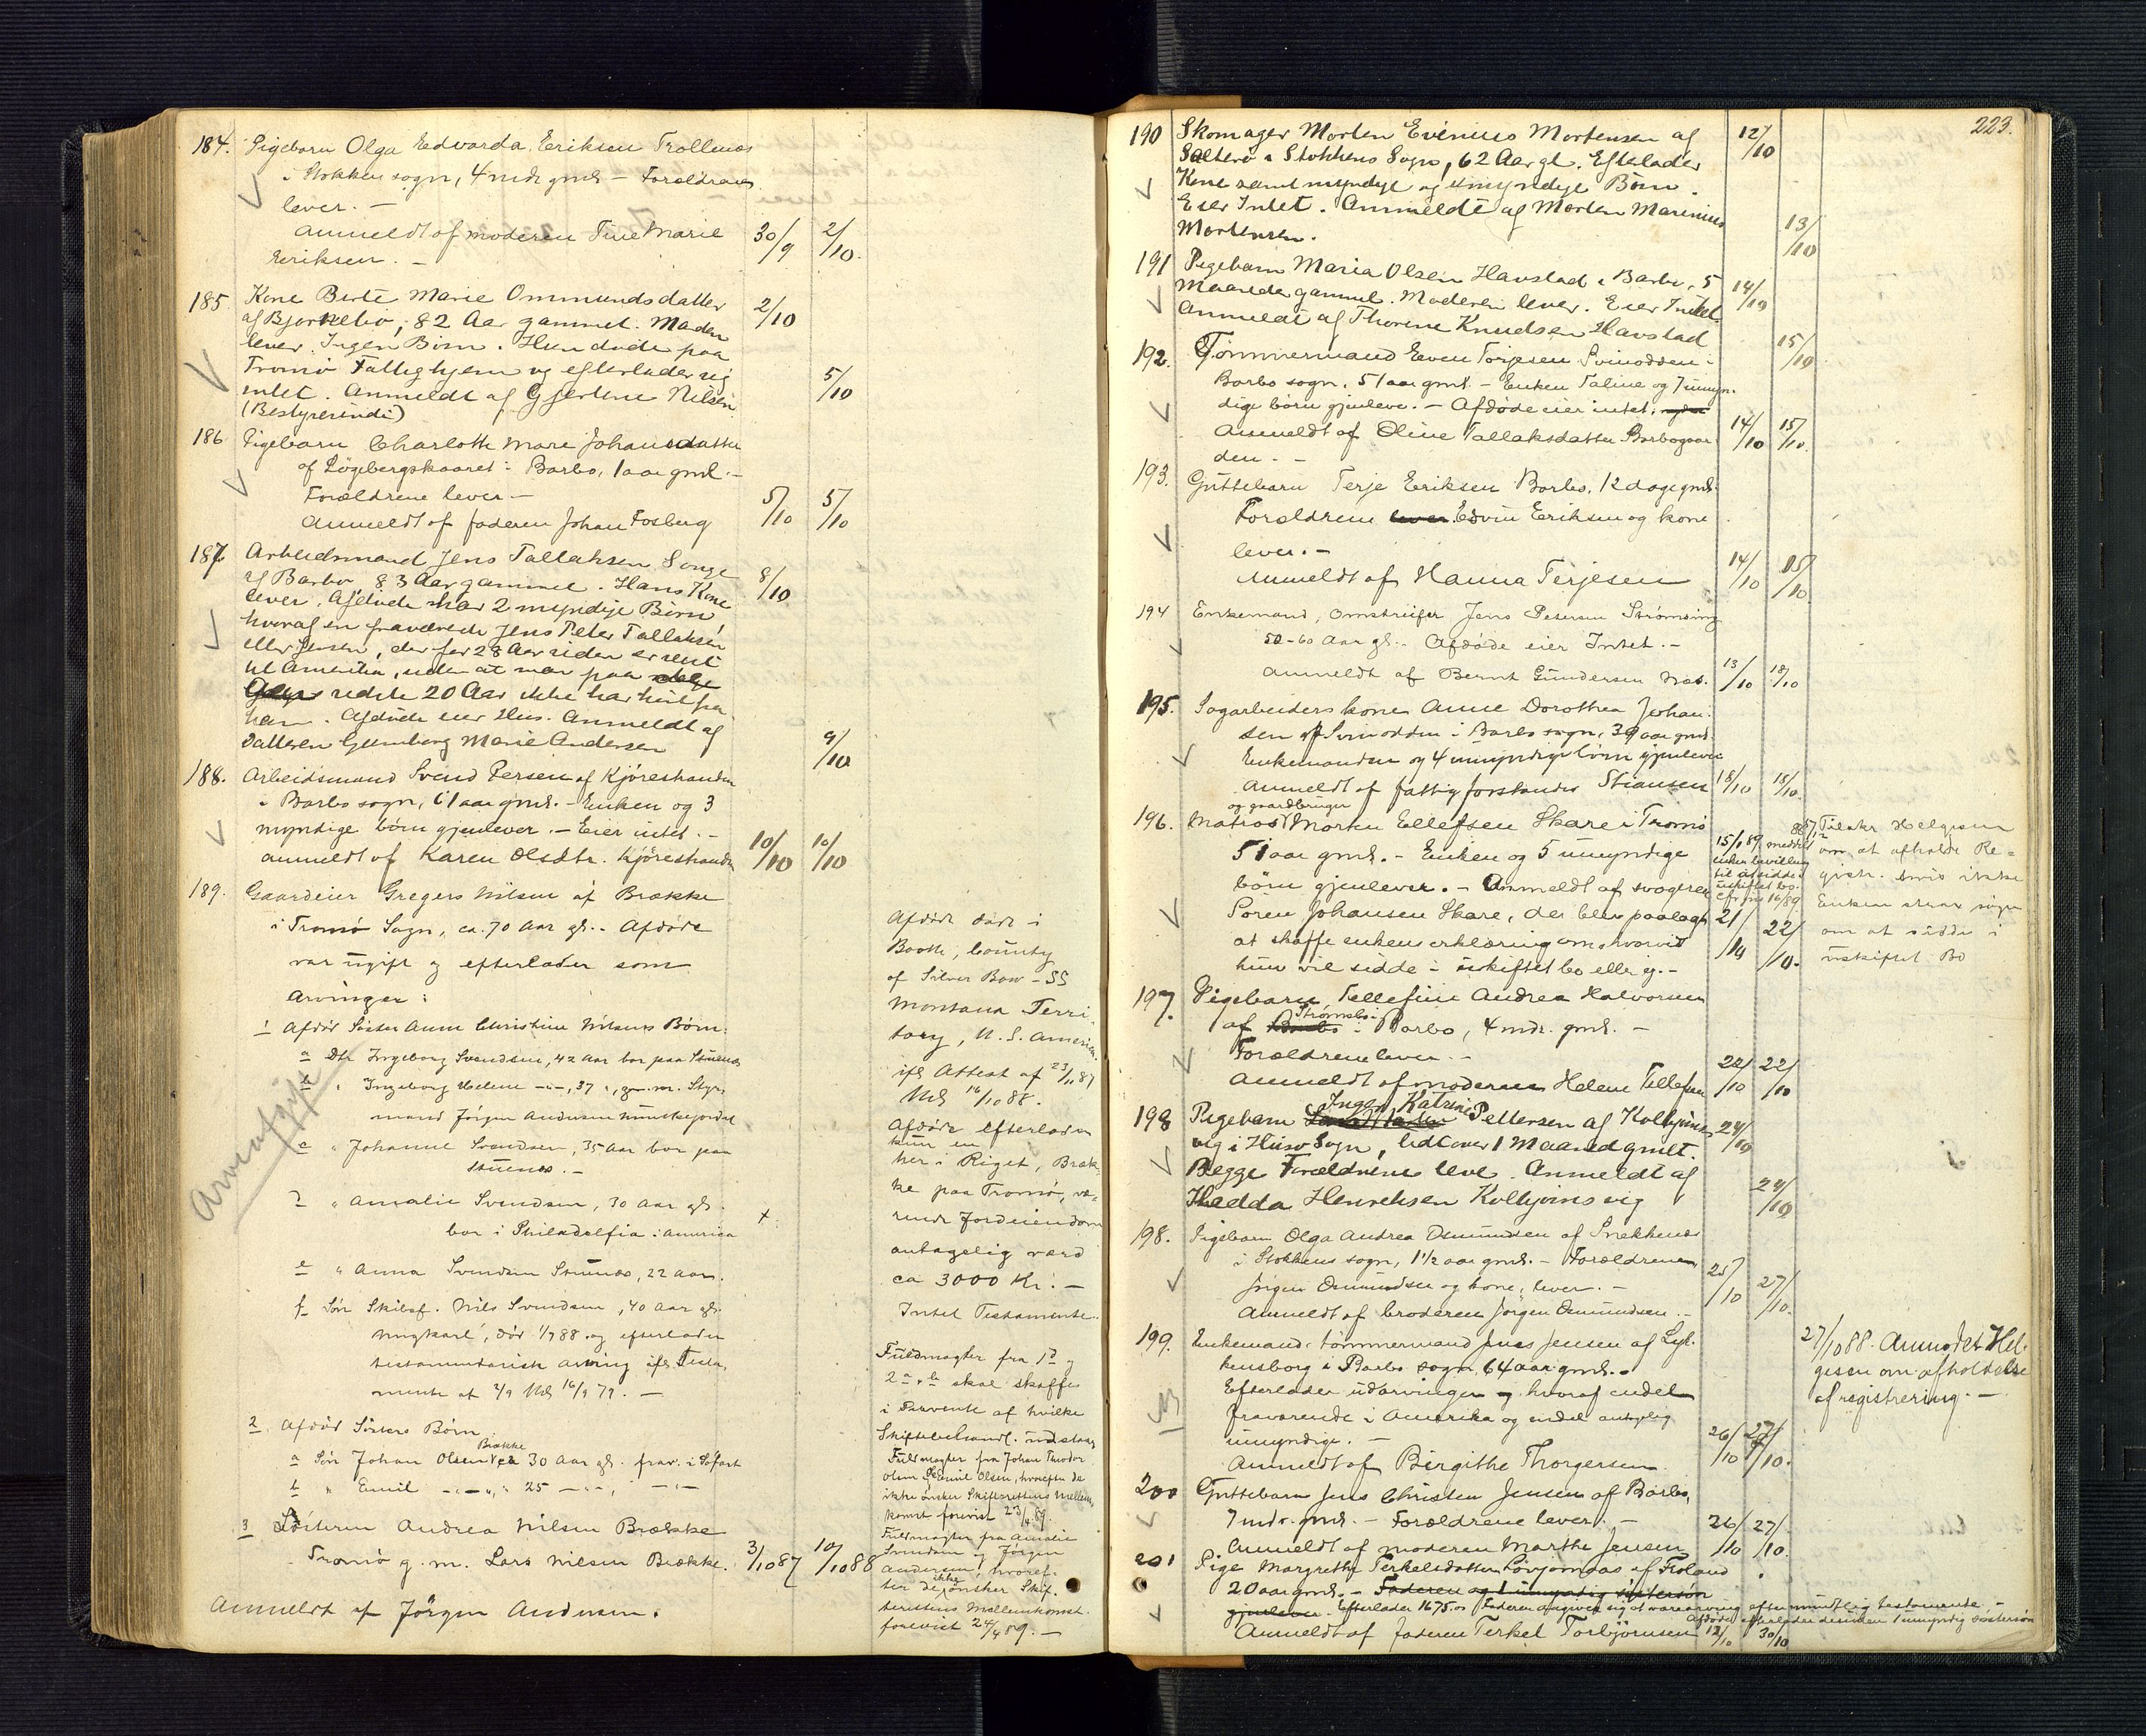 184. Pigebarn Olga Edvarda Eriksen Trollenæs
i Stokken sogn, 4 mdr gml. – Forældrene
lever. –
Anmeldt af moderen Tine Marie 30/9 2/10.
Eriksen. –
185. Kone Berte Marie Ommundsdatter 2/10
af Bjornebo, 82 Aar gammel. Manden
lever. Ingen Børn. Hun døde paa
Tromø Fattighjem og efterlader sig
intet. Anmeldt af Gjertine Nilsen 5/10
(Bestyrerinde)
186 Pigebarn Charlotte Marie Johansdatter
af Løgebergskaaret i Barbo, 1 aar gml. –
Forældrene lever –
Anmeldt af faderen Johan Fosberg 5/10 5/10
187 Arbeidsmand Jens Tallaksen Songe
af Barbo 83 Aar gammel. Hans Kone 8/10
lever. Afdøde har 2 myndige Børn,
hvoraf en fraværende Jens Peter Tallaksen
eller Jensen, der for 28 Aar siden er reist
til Amerika, uden at man paa
sidste 20 Aar ikke har hørt fra
ham. Afdøde eier Hus. Anmeldt af
Datteren Gunborg Marie Andersen 9/10
188. Arbeidsmand Svend Persen af Kjørestranden
i Barbo sogn, 61 aar gml. – Enken og 3
myndige børn gjenlever. – Eier intet. –
anmeldt af Karen Olsdtr. Kjørestranden 10/10 10/10
189. Gaardeier Gregers Nilsen af Brække
i Tromø Sogn, ca. 70 Aar gl. – Afdøde
var ugift og efterlader som
Arvinger:
1 Afdød Søster Anne Christine Nilsens Børn:
a Dtr Ingeborg Svendsen, 42 Aar bor paa Stuenæs
b " Ingeborg Helene –"–, 37 ", g. m. Styr-
mand Jørgen Andersen
c " Johanne Svendsen, 35 Aar bor paa
Stuenæs. –
d " Amalie Svendsen, 30 Aar gl. +
bor i Philadelfia i America
e " Anna Svendsen Stuenæs, 22 aar.
f Søn Skibsf. Nils Svendsen, 40 Aar gl.
ungkarl, død 1/7 88 og efterlader
testamentarisk arving ifl. Testa-
mente af 2/9 Mdl 16/9 79. –
2. Afdød Søsters Børn
Brække
a Søn Johan Olsen ca 30 Aar gl. frav. i Søfart
b " Emil –"–, 25 –"–, –"–
3 Søsteren Andrea Nilsen Brække
Tromø g. m. Lars Nilsen Brække. 3/10 87 10/10 88
Anmeldt af Jørgen Andersen.
Arveafgift
Afdøde døde i
Booth, County
of Silver Bow – SS
Montana Terri-
tory, U. S. America.
ifl Attest af 23/11 87
Mdl 16/10 88.
Afdøde efterlader
kun en
her i Riget, Bræk-
ke paa Tromø, væ-
rende Jordeiendom
antagelig værd
ca 3000 Kr. –
Intet Testamente.
Fuldmagter fra 1d og
2 a, b skal skaffes
i Paavente af hvilke
Skiftebehandl. udstaar
Fuldmagter fra Johan Theodor
Olsen og Emil Olsen, hvorefter de
ikke ønsker Skifterettens Mellem-
komst forevist 23/4 89.
Fuldmagter fra Amalie
Svendsen og Jørgen
Andersen, hvoref-
ter de ikke ønsker Skif-
terettens Mellemkomst.
forevist 24/4 89. –
223.
190 Skomager Morten Evenius Mortensen af 12/10
Salterø i Stokkens Sogn, 62 Aar gl. Efterlader
Kone samt myndige og umyndige Børn.
Eier Intet. Anmeldt af Morten Marinius
Mortensen. 13/10
191 Pigebarn Maria Olsen Havstad i Barbo, 5 14/10
Maaneder gammel. Moderen lever. Eier Intet.
Anmeldt af Thorine Knudsen Havstad 15/10
192. Tømmermand Even Torjesen Svinodden i
Barbo sogn, 51 aar gml. – Enken Taline og 7 umyn-
dige børn gjenlever. – Afdøde eier intet.
Anmeldt af Oline Tallaksdatter Barbogaar- 14/10 15/10.
den. –
193. Guttebarn Terje Eriksen Barbo, 12 dage gml.
Forældrene lever Edvin Eriksen og kone
lever. –
Anmeldt af Hanna Terjesen 14/10 15/10
194 Enkemand, Omstreifer Jens Petersen Strømsing
50-60 Aar gl. – Afdøde eier Intet. –
Anmeldt af Bernt Gundersen Næs. 13/10 18/10
195. Sagarbeiders kone Anne Dorothea Johan-
sen af Svinodden i Barbo sogn, 39 aar gml.
Enkemanden og 4 umyndige børn gjenlever
Anmeldt af fattigforstander Stiansen 18/10 18/10.
og gaardbruger
196. Matros Morten Ellefsen Skare i Tromø
51 aar gml. – Enken og 5 umyndige
børn gjenlever. – Anmeldt af svogeren
Søren Johansen Skare, der blev paalagt 21/10 22/10.
at skaffe enkens erklæring om hvorvidt
hun vil sidde i uskiftet bo eller ej. –
15/1 89 meddelt
enken bevilling
til at sidde i
uskiftet bo.
Tilskr. Helgesen
om at afholde Re-
gistr. hvis ikke
Enken straks søger
om at sidde i
uskiftet Bo
197. Pigebarn Tellefine Andrea Halvorsen
Strømsbo
af Barbo i Barbo, 4 mdr. gml. –
Forældrene lever. –
Anmeldt af moderen Helene Tellefsen 22/10 22/10
Inger Katrine
198 Pigebarn Pettersen af Kolbjørns- 24/10
vig i Hisø Sogn, lidt over 1 Maaned gmlt.
Begge Forældrene leve. Anmeldt af
Hedda Henriksen Kolbjørnsvig 24/10
198. Pigebarn Olga Andrea Osmundsen af Snekkenæs
i Stokkens sogn, 1 1/2 aar gml. – Forældrene
Jørgen Osmundsen og kone, lever. – 25/10 27/10.
Anmeldt af broderen Jørgen Osmundsen. –
199. Enkemand, tømmermand Jens Jensen af Lyk-
kensborg i Barbo sogn, 64 aar gml.
Efterlader udarvinger hvoraf endel
fraværende i Amerika og endel antagelig
umyndige. – 26/10 27/10.
Anmeldt af Birgithe Thorgersen
27/10 88. Anmodet Hel-
gesen om afholdelse
af registrering. –
200 Guttebarn Jens Christen Jensen af Barbo,
7 mdr. gml. – Forældrene lever. –
Anmeldt af moderen Marthe Jensen 26/10 27/10.
201 Pige Margrethe Terkelsdatter Løvjomdas af Froland
20 aar gml. – Faderen og 1 umyndig søstersøn
gjenlever. Efterlader 1675.00 Faderen angiver sig at være arving efter mundtlig testamente –
Afdøde efterlader desuden 1 umyndig søstersøn
Anmeldt af faderen Terkel Torbjørnsen 12/10 30/10